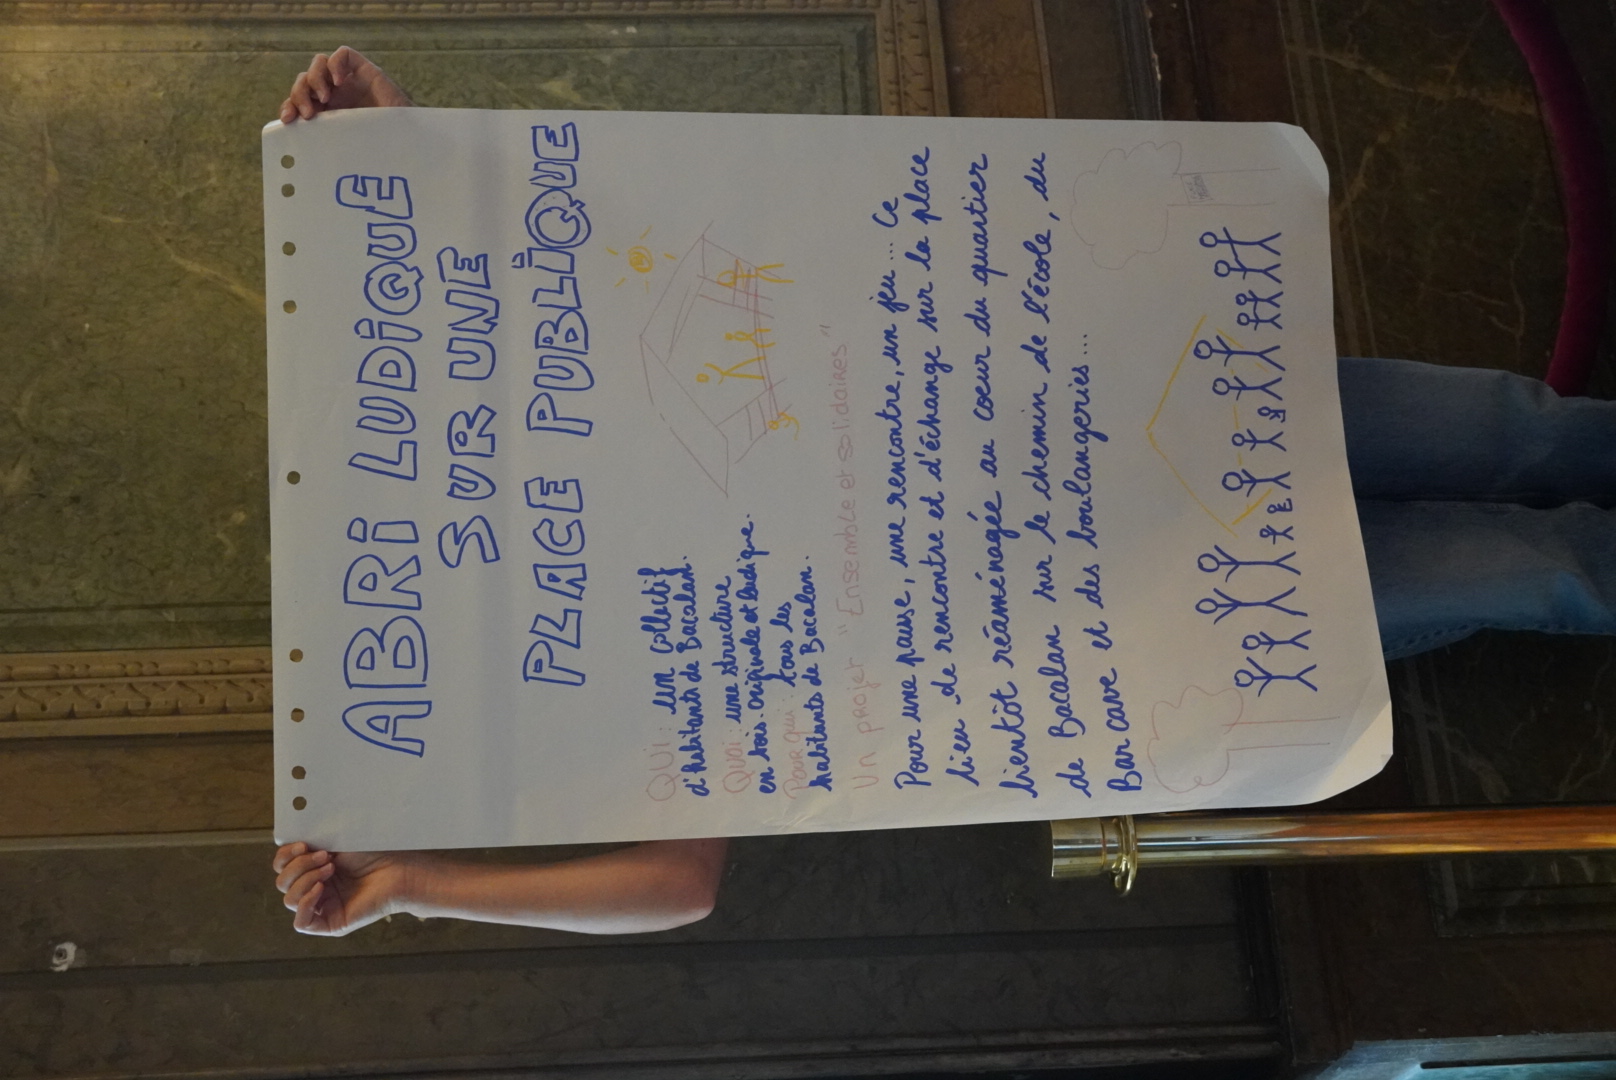 ABRI LUDIQUE
SUR UNE
PLACE PUBLIQUE
QUI : un collectif
d'habitants de Bacalan.
QUOI : une structure
en bois. originale et ludique.
Pour qui : tous les
habitants de Bacalan.
Un projet "Ensemble et solidaires"
Pour une pause, une rencontre, un jeu ... Ce
lieu de rencontre et d'échange sur la place
bientôt réaménagée au coeur du quartier
de Bacalan sur le chemin de l'école, du
Bar cave et des boulangeries ...